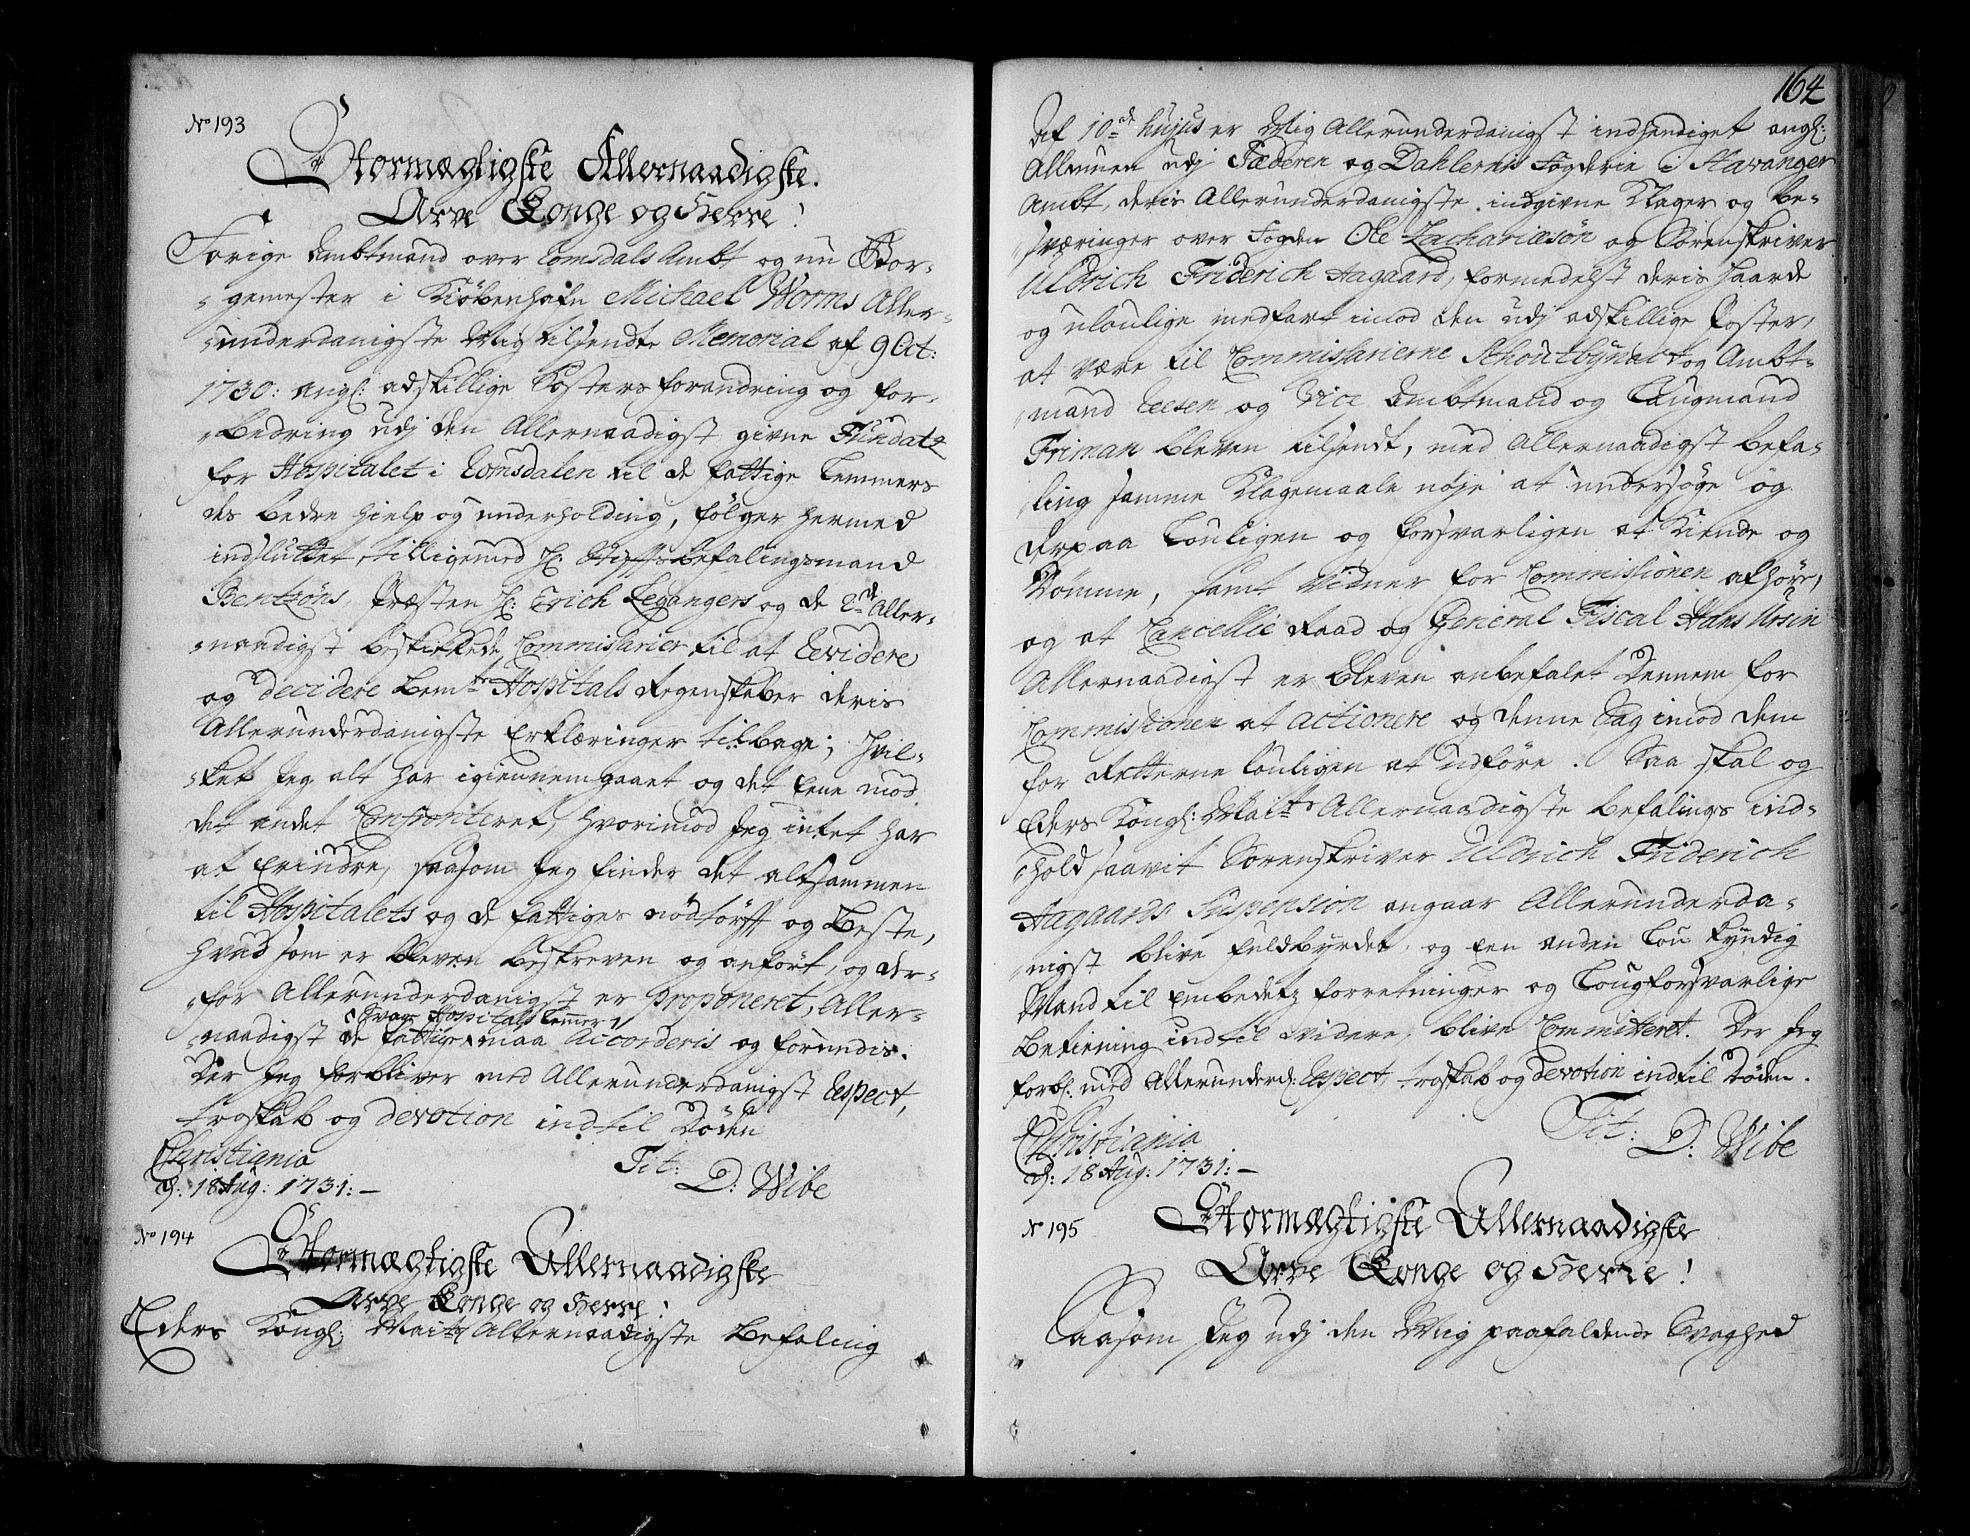 No 193
Stormægtigste Allernaadigste.
Arve Konge og Herre!
Forige Ambtmand over Romsdals Ambt og nu Bor-
-gemester i Kiøbenhafn Michael Worms Aller-
-underdanigste Mig tilsendte Memorial af 9 Oct:
1730: angl: adskillige Posters forandring og for-
-bedring udj den Allernaadigst givne Fundatz
for Hospitalet i Romsdalen til de fattige Lemmers
des bedre hielp og underholding, følger hermed
indsluttet, tilligemed H: Stiftsbefalingsmand
Bentzøns, Præsten H: Erich Leganger og de 2de Aller-
-naadigst beskikkede Commissarier til at Revidere
og decidere bemte Hospitals Regenskaber deris
Allerunderdanigste Erklæringer tilbage; hvil-
-ket Jeg alt har igiennemgaaet og det eene mod
det andet Confronteret, hvorimod Jeg intet har
at Erindre, saasom Jeg finder det altsammen
til Hospitalets og de fattiges nødtørft og beste,
hvad som er bleven beskreven og anført, og der-
-for Allerunderdanigst er proponeret, Aller-
hvage Hospitals Lemmer
-naadigst de fattige maa accorderis og forundis.
Der Jeg forbliver med Allerunderdanigst Respect,
troskab og devotion indtil Døden
Christiania
d: 18 Aug: 1731: –
Tit:
D: Wibe
No 194
Stormægtigste Allernaadigste
Arve Konge og Herre!
Eders Kongl: Maits Allernaadigste Befaling
164
Af 10de hujus er Mig Allerunderdanigst indhendiget angl:
Allmuen udj Jæderen og Dahlernes Fogderie i Stavanger
Ambt, deris Allerunderdanigste indgivne Klager og be-
sværinger over Fogden Ole Zachariæsøn og Sorenskriver
Uldrich Friderich Aagaard, formedelst deris haarde
og ulovlige medfart imod den udj adskillige Poster,
at være til Commissarierne Schoutbynacht og Ambt-
-mand Reesen og Vice Ambtmand og Laugmand
Friman bleven tilsendt, med Allernaadigst befa-
ling samme Klagemaale nøje at undersøge og
derpaa Lovligen og forsvarligen at Kiende og
Dømme, samt Vidner for Commissionen afhøre,
og at Cancellie Raad og General Fiscal Hans Ursin
Allernaadigst er bleven anbefalet Dennem for
Commissionen at actionere og denne Sag imod dem
for Retterne Lovligen at udføre. Saa skal og
Eders Kongl: Maits Allernaadigste Befalings ind-
-hold saavit Sorenskriver Uldrich Friderich
Aagaards Suspension angaar Allerunderda-
-nigst blive fuldbyrdet og een anden Lov Kyndig
Mand til Embedetz forretninger og Lougforsvarlige
Betiening indtil videre, blive Committeret. Der Jeg
forbl: med Allerunderd: Respect, troskab og devotion indtil Døden.
Christiania
d: 18 Aug: 1731: –
Tit:
D: Wibe
No 195
Stormægtigste Allernaadigste
Arve Konge og Herre!
Saasom Jeg udj den Mig paafaldende Svaghed